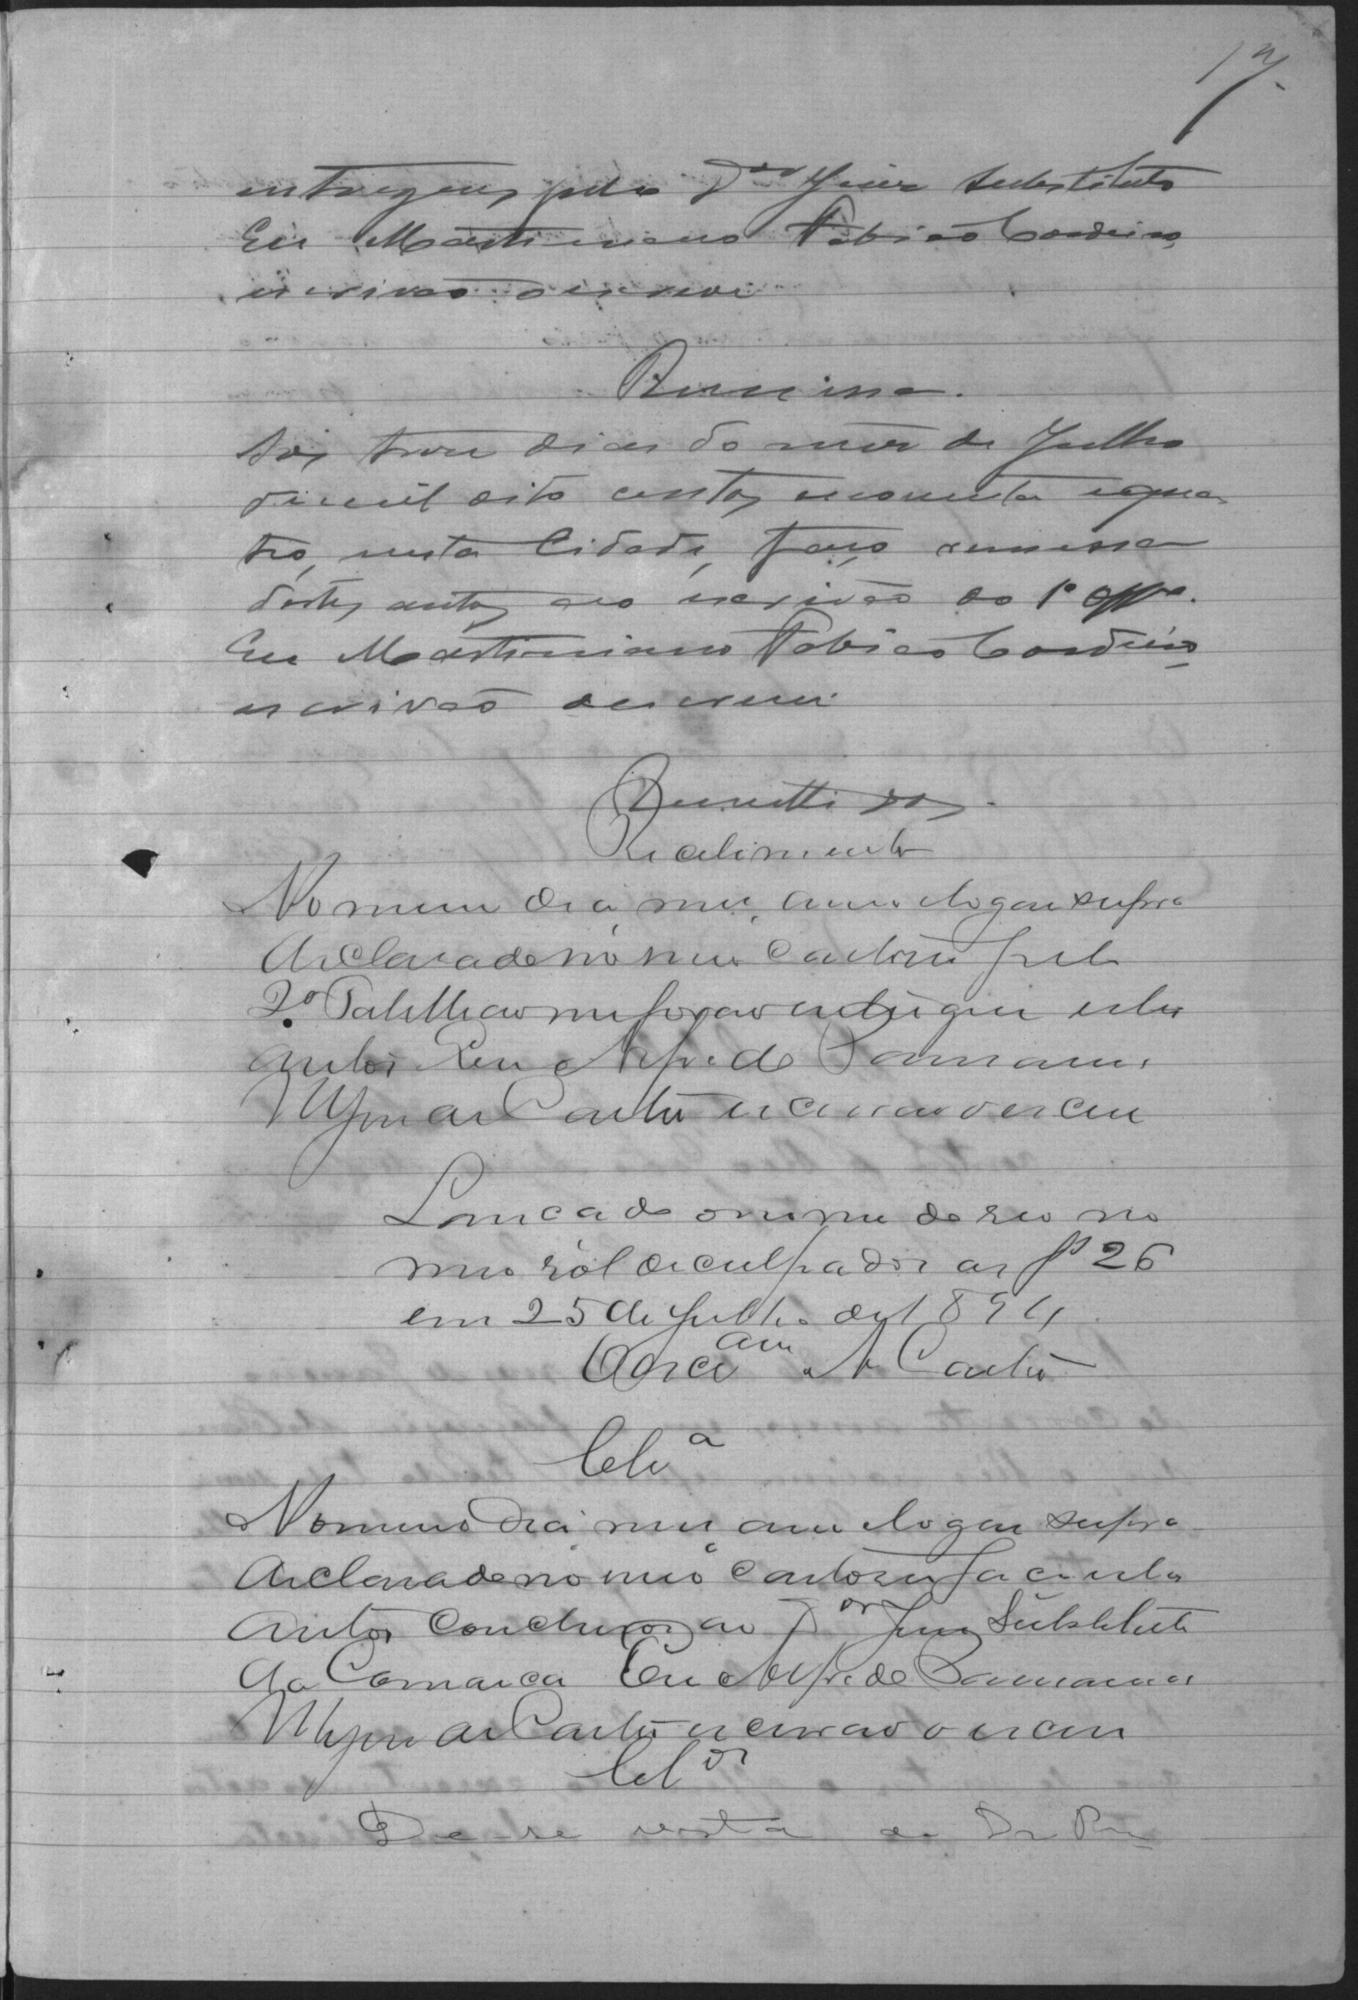 17
entregues pelo Dor Juiz Substituto
Eu Martiniano Fabião Cordeiro,
escrivão o escrevi
Remessa.
Aos treze dias do mez de Julho
de mil oito centos e noventa e qua-
tro, nesta Cidade, faço remessa
destes autos ao escrivão do 1º Offº.
Eu Martiniano Fabião Cordeiro
escrivão o escrevi
Remettidos.
Recebimento
No mesmo dia mez, anno e logar supra
declarado no meu Cartorio pelo
2º Tabellião me forão entregues estes
autos Eu Alfredo
de Castro escrivão o escrevi
Lançado o nome do reo no
meu rol de culpados as fs 26
em 25 de Julho de 1894
O escam A Castro
Clsa
No mesmo dia mez anno e logar supra
declarado no meu Cartorio faço estes
autos conclusos ao Dor Juiz Substituto
da Comarca Eu Alfredo
de Castro escrivão o escrevi
Clos
Dê-se vista ao Dr Pro